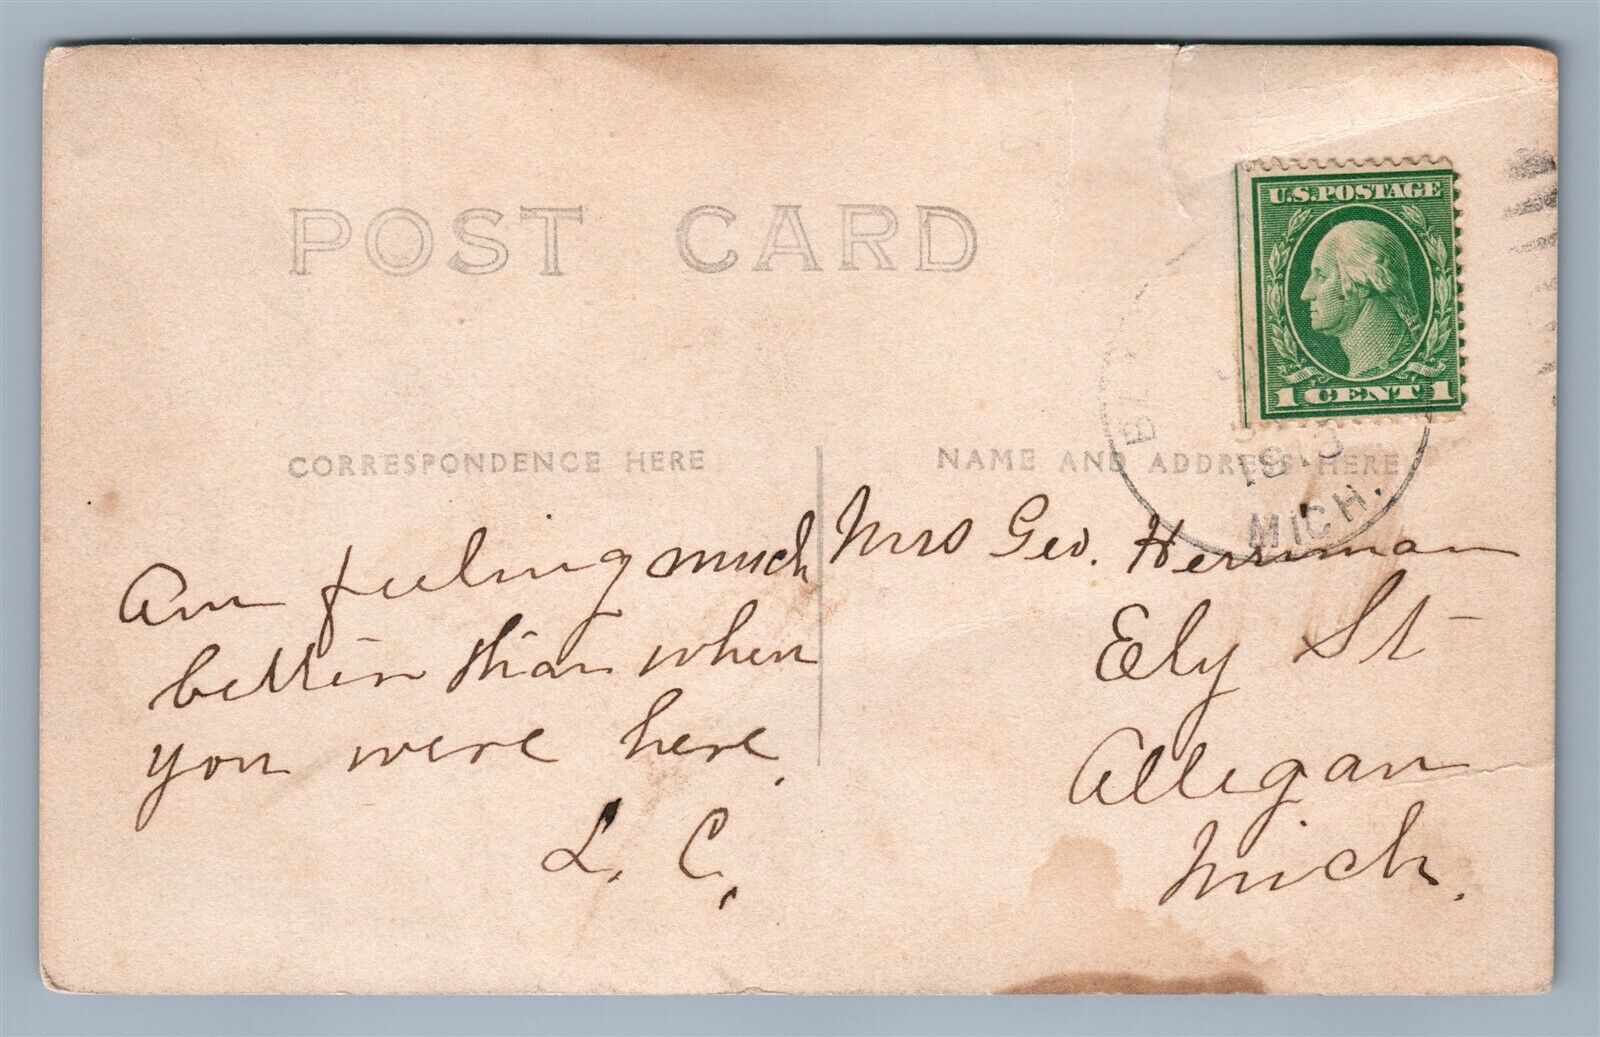 POST CARD
U.S. POSTAGE
1 CENT 1
1913
MICH.
CORRESPONDENCE HERE
NAME AND ADDRESS HERE
Am feeling much
better than when
you were here.
L. C.
Mrs Geo. Herriman
Ely St
Allegan
Mich.